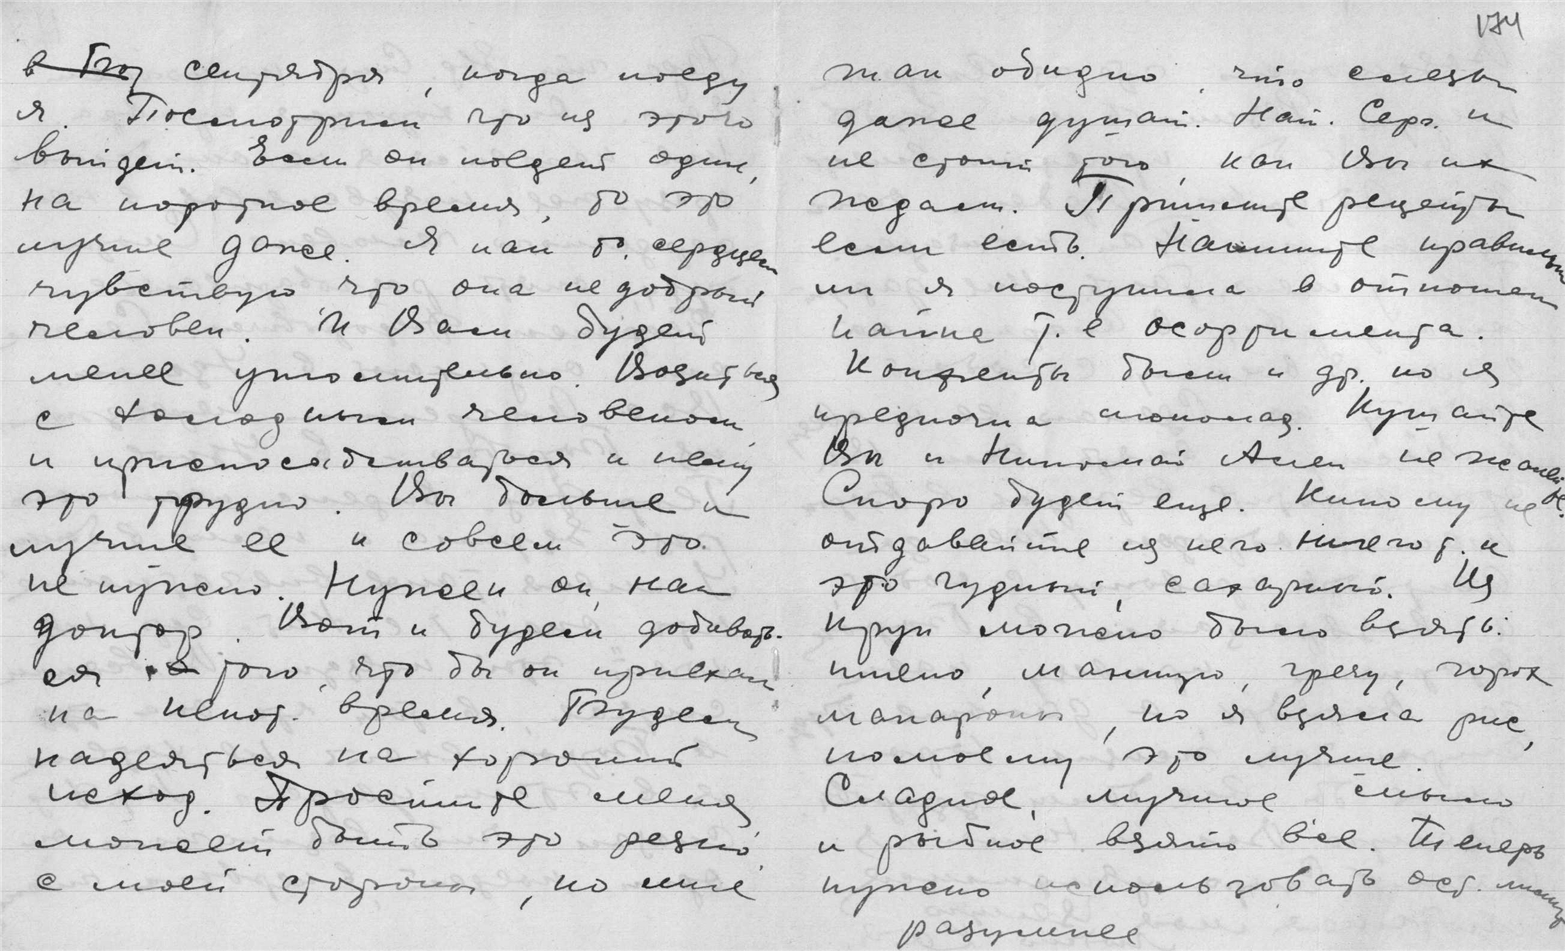 174
сентября, когда поеду
я. Посмотрим что из этого
выйдет. Если он поедет один,
на короткое время, то это
лучше даже. Я как то сердцем
чувствую, что она не добрый
человек. И Вам будет
менее утомительно. Возиться
с холодным человеком,
и приспосабливаться к нему
это трудно. Вы больше и
лучше ее и совсем это
не нужно. Нужен он, как
доктор. Вот и будем добивать-
ся того, что бы он приехал
на некот. время. Будем
надеяться на хороший
исход. Простите меня
может быть это резко
с моей стороны, но мне
так обидно, что слезы
даже душат. Нат. Серг. и
не стоит того, как Вы их
ждали. Пришлите рецепты
если есть. Напишите правильно
ли я поступила в отношен.
пайка т.е ассортимента.
Конфекты были и др. но я
предпочла шоколад. Кушайте
Вы и Николай Алек не жалейте.
Скоро будет еще. Никому не
отдавайте из него ничего т. к
это чудный, сахарный. Из
круп можно было взять:
пшено, манную, гречу, горох
макароны, но я взяла рис,
помоему это лучше.
Сладкое, мучное, мыло
и рыбное взято все. Теперь
нужно использовать ост.
разумнее